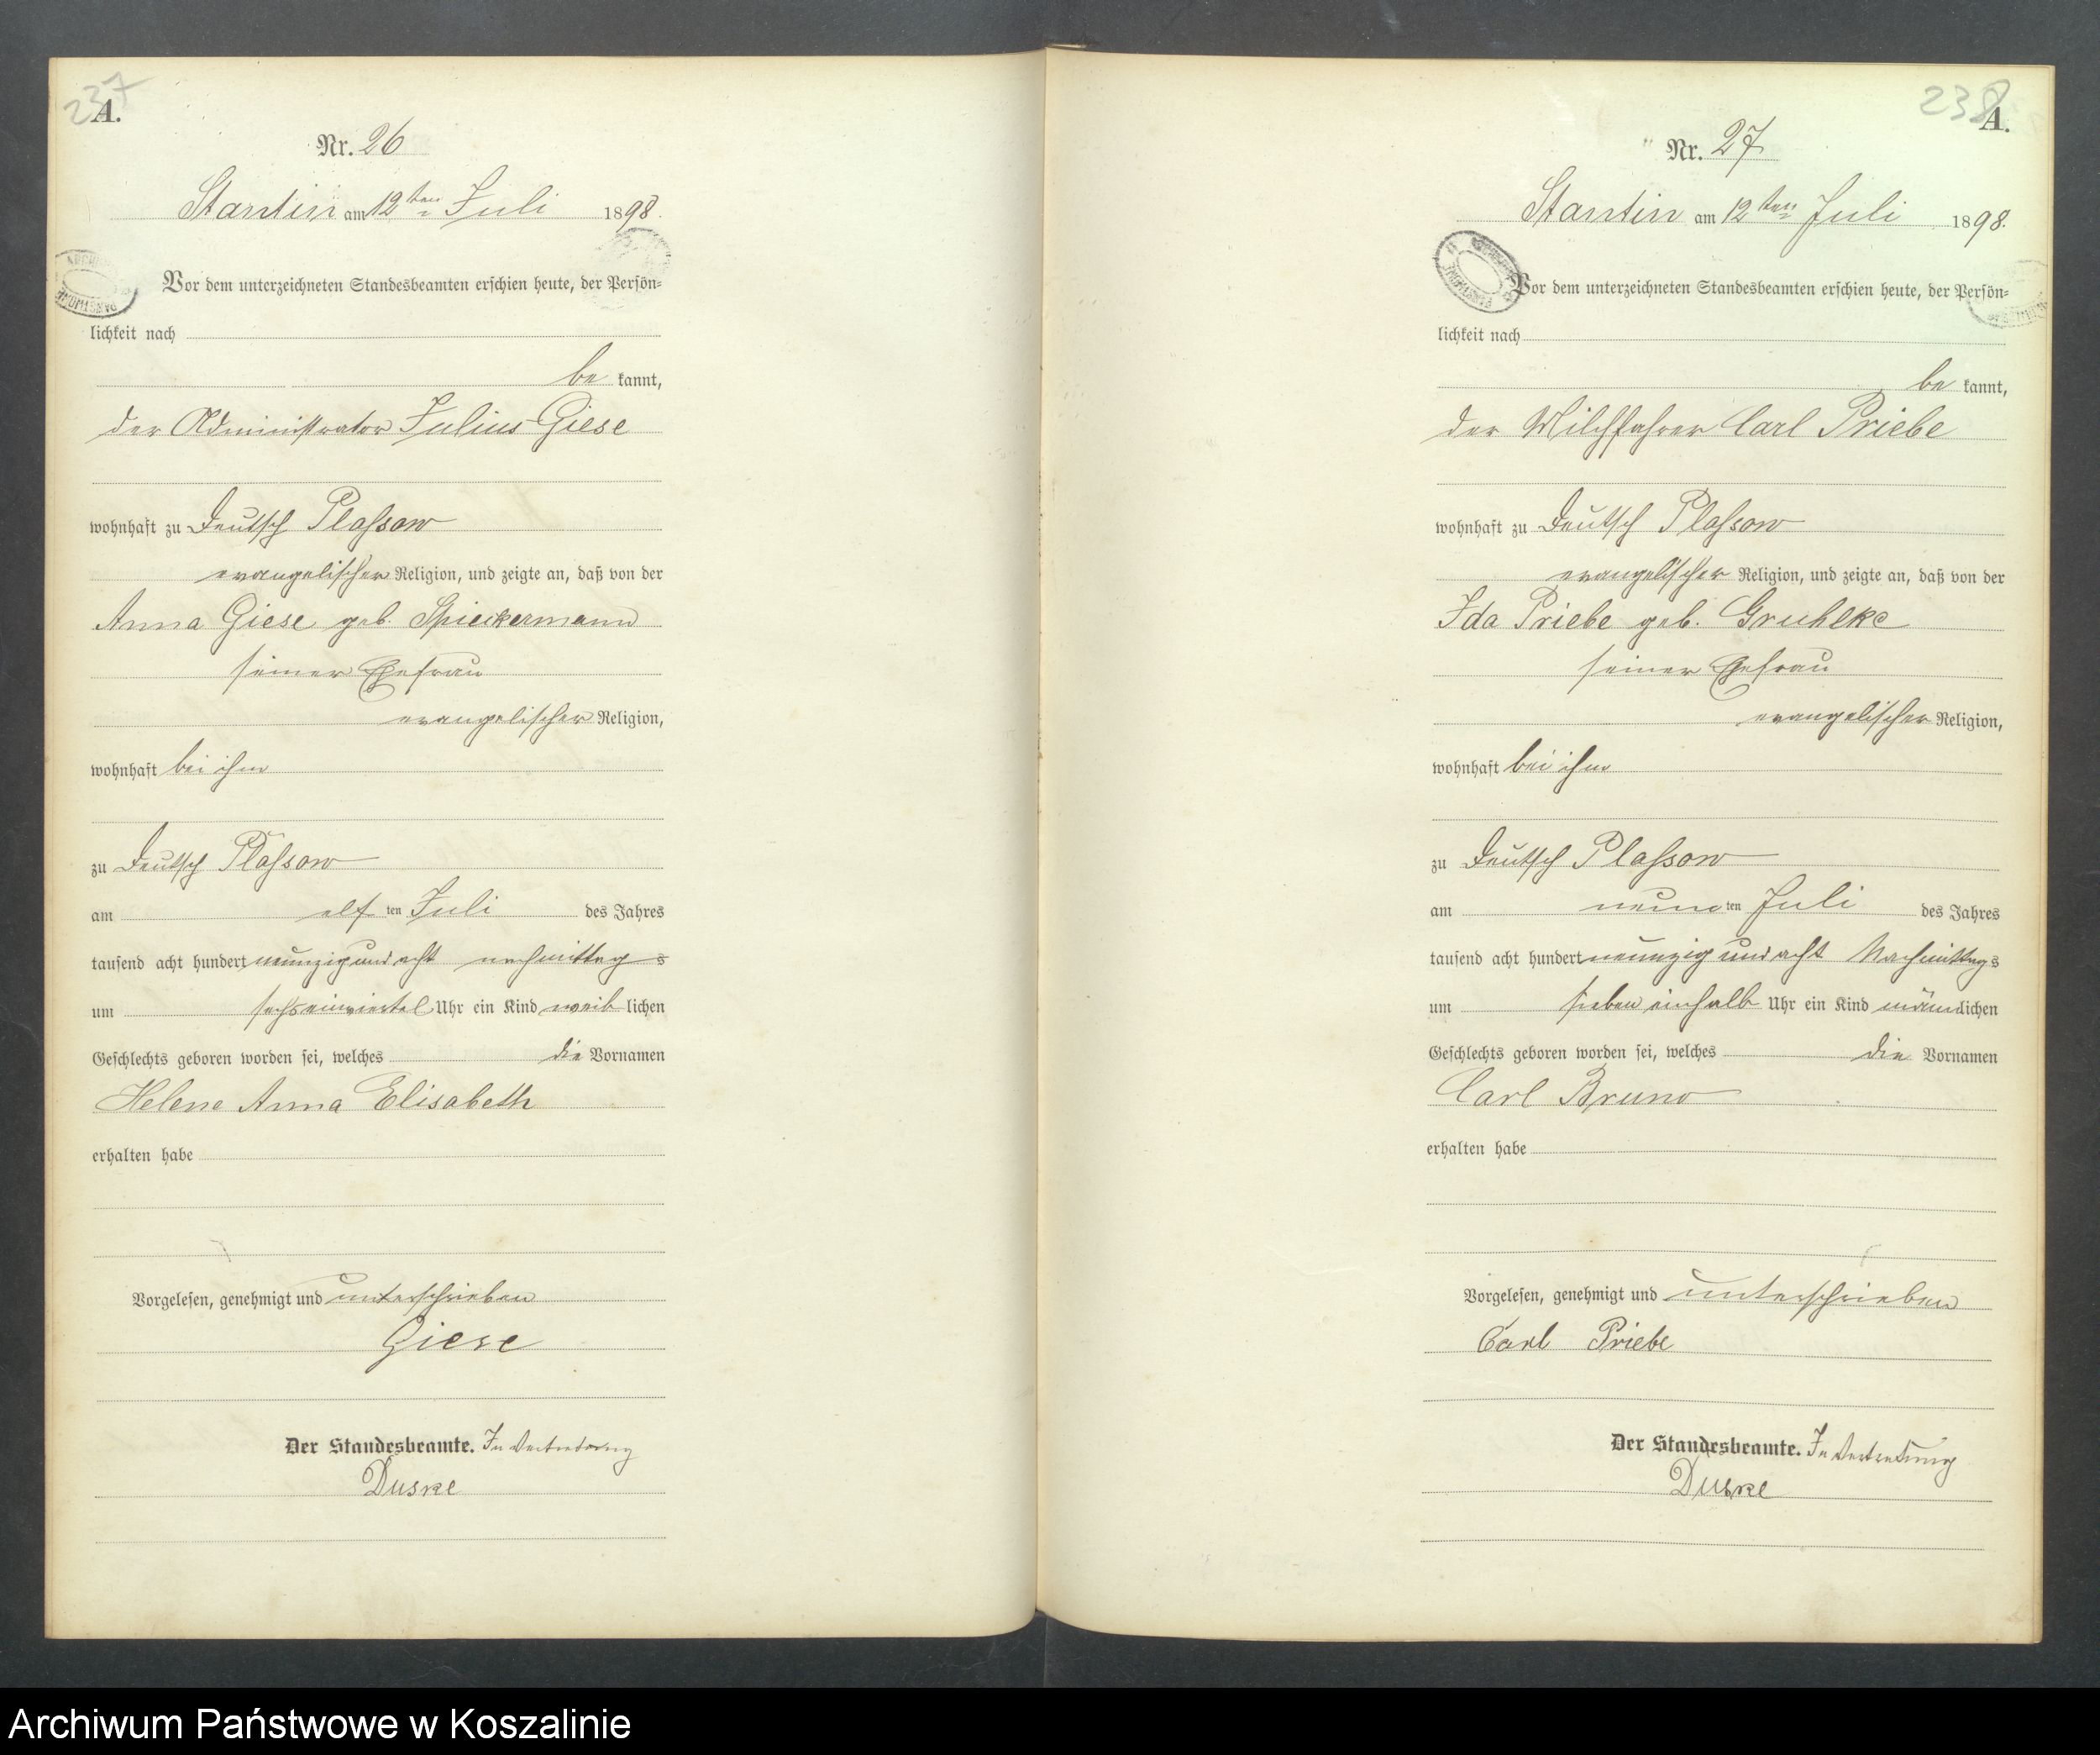 237
A.
Nr. 26
Stantin am 12ten Juli 1898.
Vor dem unterzeichneten Standesbeamten erschien heute, der Persön=
lichkeit nach
be kannt,
der Administrator Julius Giese
wohnhaft zu Deutsch Plassow
evangelischer Religion, und zeigte an, daß von der
Anna Giese geb. Spieckermann
seiner Ehefrau
evangelischer Religion,
wohnhaft bei ihm
zu Deutsch Plassow
am elf ten Juli des Jahres
tausend acht hundert neunzig und acht nachmittag s
um sechs einviertel Uhr ein Kind weib lichen
Geschlechts geboren worden sei, welches die Vornamen
Helene Anna Elisabeth
erhalten habe
Vorgelesen, genehmigt und unterschrieben
Giese
Der Standesbeamte. In Vertretung
Duske
238
A.
Nr. 27
Stantin am 12ten Juli 1898.
Vor dem unterzeichneten Standesbeamten erschien heute, der Persön=
lichkeit nach
be kannt,
der Milchfahrer Carl Priebe
wohnhaft zu Deutsch Plassow
evangelischer Religion, und zeigte an, daß von der
Ida Priebe geb. Gruhlke
seiner Ehefrau
evangelischer Religion,
wohnhaft bei ihm
zu Deutsch Plassow
am neun ten Juli des Jahres
tausend acht hundert neunzig und acht Nachmittags
um sieben einhalb Uhr ein Kind männlichen
Geschlechts geboren worden sei, welches die Vornamen
Carl Bruno
erhalten habe
Vorgelesen, genehmigt und unterschrieben
Carl Priebe
Der Standesbeamte. In Vertretung
Duske
Archiwum Państwowe w Koszalinie